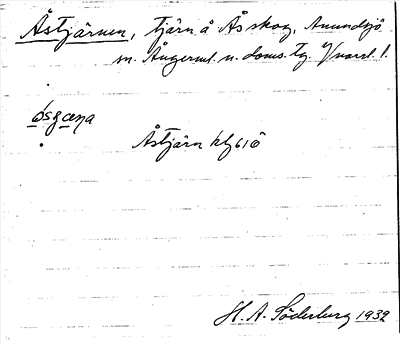 Åstjärnen, tjärn å Ås skog, Anundsjö
sn. Ångerml. n. doms. Tg. V/norrl. l.
Åstjärn kbl 61ö
H. A. Söderberg 1932